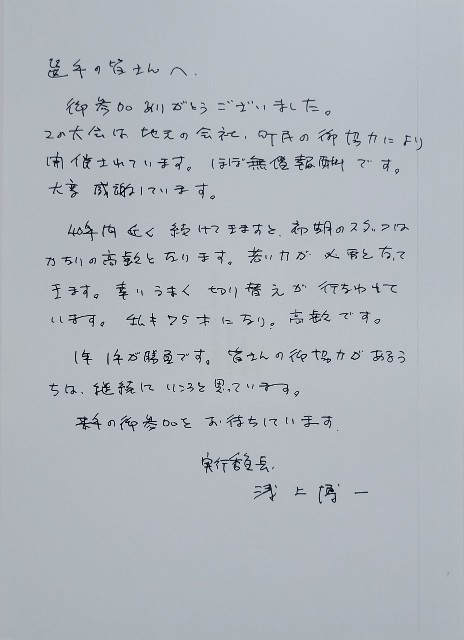 選手の皆さんへ.
御参加ありがとうございました。
この大会は地元の会社、町民の御協力により
開催されています。ほぼ無償報酬です。
大変感謝しています。
40年間近く続けて来ますと、初期のスタッフは
かなりの高齢となります。若い力が必要となって
きます。幸いうまく切り替えが行なわれて
います。私も75才になり。高齢です。
1年1年が勝負です。皆さんの御協力があるう
ちは、継続していこうと思っています。
来年の御参加をお待ちしています.
実行委員長.
浅上博一